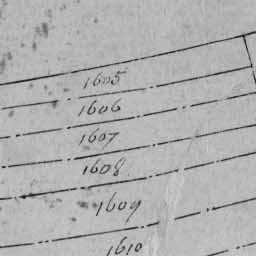 1605
1606
1607
1608
1609
1610